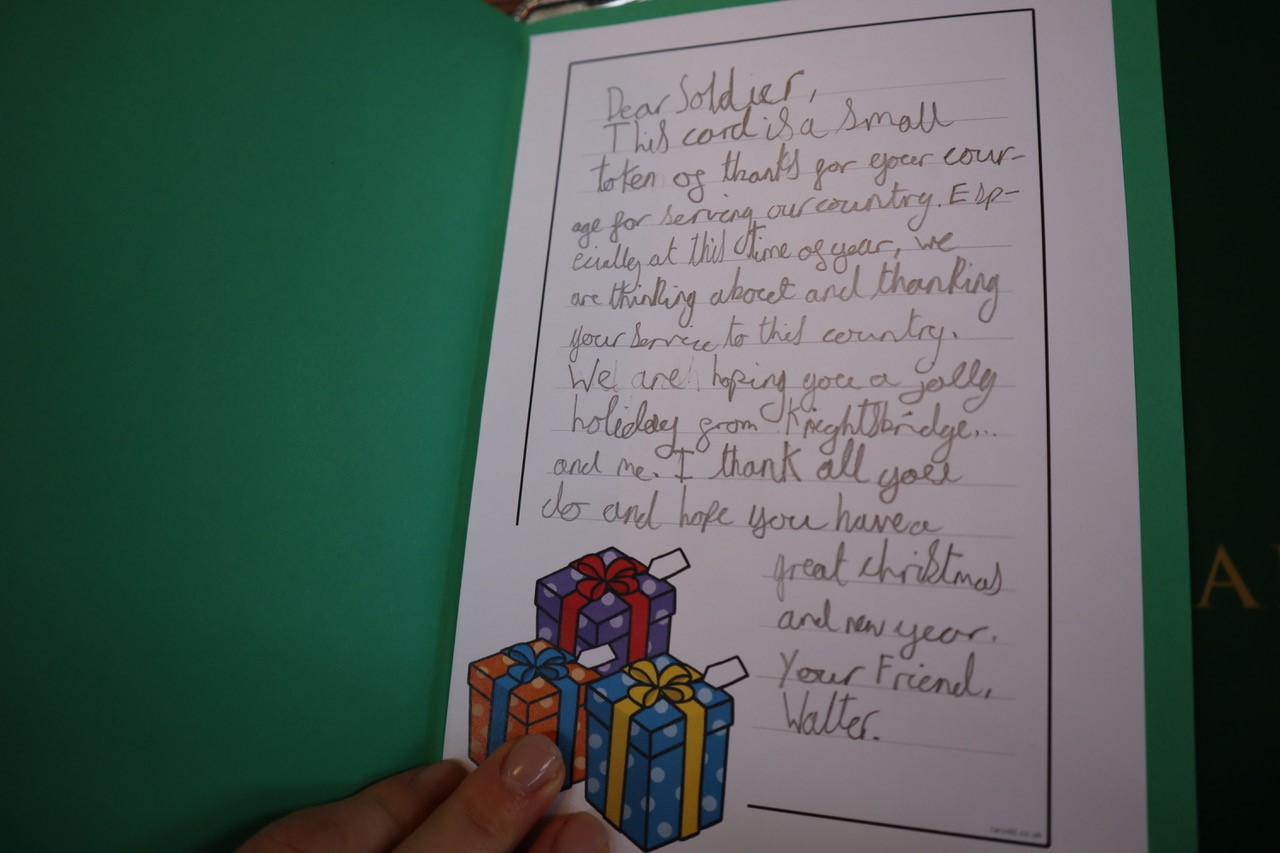 Dear Soldier,
This card is a small
token of thanks for your cour-
age for serving our country. Esp-
ecially at this time of year, we
are thinking about and thanking
your service to this country.
We are hoping you a jolly
holiday from Knightsbridge...
and me. I thank all you
do and hope you have a
great christmas
and new year.
Your Friend,
Walter.
A